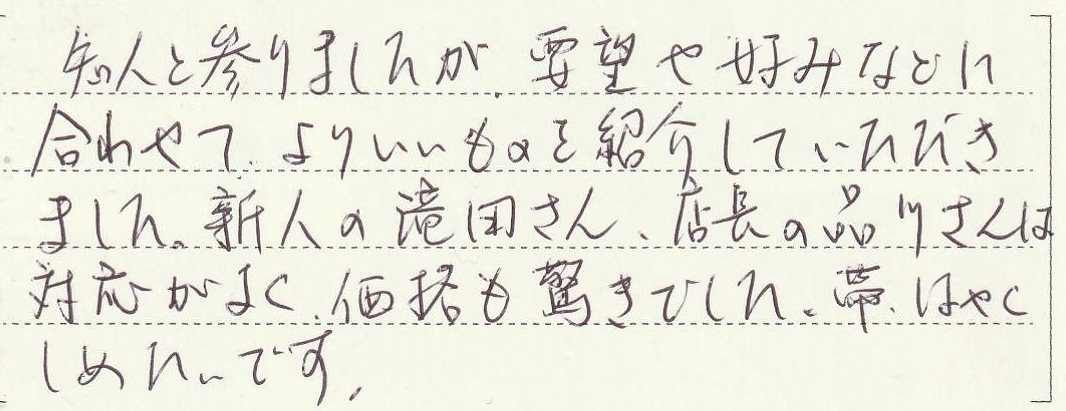 知人と参りましたが、要望や好みなどに
合わせて、よりいいものを紹介していただき
ました。新人の滝田さん、店長の品川さんは
対応がよく、価格も驚きでした。帯、はやく
しめたいです。